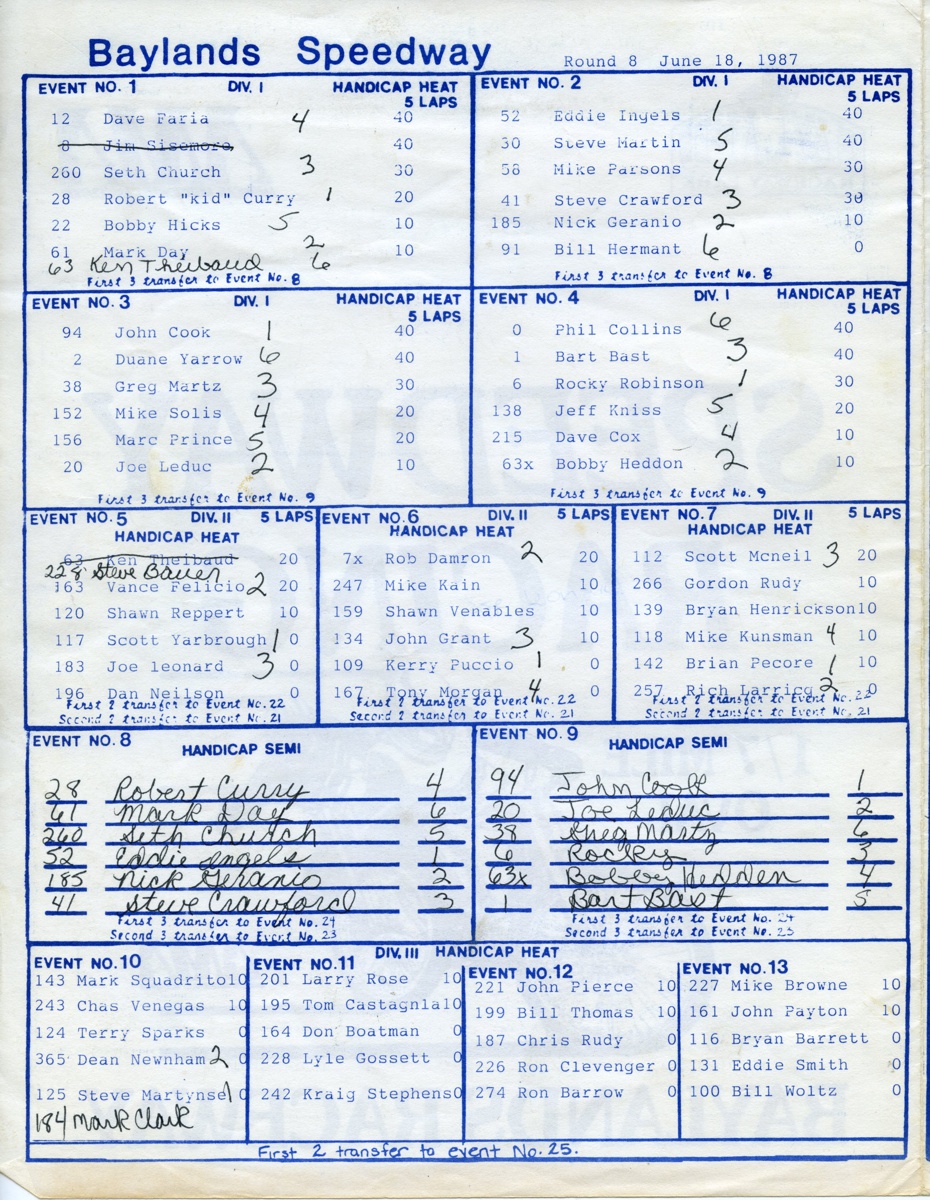 Baylands Speedway Round 8 June 18, 1987
EVENT NO. 1 DIV. I HANDICAP HEAT
5 LAPS
12 Dave Faria 4 40
8 Jim Sisemore 40
260 Seth Church 3 30
28 Robert "kid" Curry 1 20
22 Bobby Hicks 5 10
61 Mark Day 2 10
63 Ken Theibaud 6
First 3 transfer to Event No. 8
EVENT NO. 2 DIV. I HANDICAP HEAT
5 LAPS
52 Eddie Ingels 1 40
30 Steve Martin 5 40
58 Mike Parsons 4 30
41 Steve Crawford 3 30
185 Nick Geranio 2 10
91 Bill Hermant 6 0
First 3 transfer to Event No. 8
EVENT NO. 3 DIV. I HANDICAP HEAT
5 LAPS
94 John Cook 1 40
2 Duane Yarrow 6 40
38 Greg Martz 3 30
152 Mike Solis 4 20
156 Marc Prince 5 20
20 Joe Leduc 2 10
First 3 transfer to Event No. 9
EVENT NO. 4 DIV. I HANDICAP HEAT
5 LAPS
0 Phil Collins 6 40
1 Bart Bast 3 40
6 Rocky Robinson 1 30
138 Jeff Kniss 5 20
215 Dave Cox 4 10
63x Bobby Heddon 2 10
First 3 transfer to Event No. 9
EVENT NO. 5 DIV. II 5 LAPS
HANDICAP HEAT
63 Ken Theibaud 20
228 Steve Bauer
163 Vance Felicio 2 20
120 Shawn Reppert 10
117 Scott Yarbrough 1 0
183 Joe leonard 3 0
196 Dan Neilson 0
First 2 transfer to Event No. 22
Second 2 transfer to Event No. 21
EVENT NO. 6 DIV. II 5 LAPS
HANDICAP HEAT
7x Rob Damron 2 20
247 Mike Kain 10
159 Shawn Venables 10
134 John Grant 3 10
109 Kerry Puccio 1 0
167 Tony Morgan 4 0
First 2 transfer to Event No. 22
Second 2 transfer to Event No. 21
EVENT NO. 7 DIV. II 5 LAPS
HANDICAP HEAT
112 Scott Mcneil 3 20
266 Gordon Rudy 10
139 Bryan Henrickson 10
118 Mike Kunsman 4 10
142 Brian Pecore 1 10
257 Rich Larricq 2 0
First 2 transfer to Event No. 22
Second 2 transfer to Event No. 21
EVENT NO. 8
HANDICAP SEMI
28 Robert Curry 4
61 Mark Day 6
260 Seth Church 5
52 Eddie engels 1
185 Nick Geranio 2
41 Steve Crawford 3
First 3 transfer to Event No. 24
Second 3 transfer to Event No. 23
EVENT NO. 9
HANDICAP SEMI
94 John Cook 1
20 Joe Leduc 2
38 Greg Martz 6
6 Rocky 3
63x Bobby Hedden 4
1 Bart Bast 5
First 3 transfer to Event No. 24
Second 3 transfer to Event No. 23
DIV. III HANDICAP HEAT
EVENT NO. 10
143 Mark Squadrito 10
243 Chas Venegas 10
124 Terry Sparks 0
365 Dean Newnham 2 0
125 Steve Martynse 1 0
184 Mark Clark
EVENT NO. 11
201 Larry Rose 10
195 Tom Castagnla 10
164 Don Boatman 0
228 Lyle Gossett 0
242 Kraig Stephens 0
EVENT NO. 12
221 John Pierce 10
199 Bill Thomas 10
187 Chris Rudy 0
226 Ron Clevenger 0
274 Ron Barrow 0
EVENT NO. 13
227 Mike Browne 10
161 John Payton 10
116 Bryan Barrett 0
131 Eddie Smith 0
100 Bill Woltz 0
First 2 transfer to event No. 25.